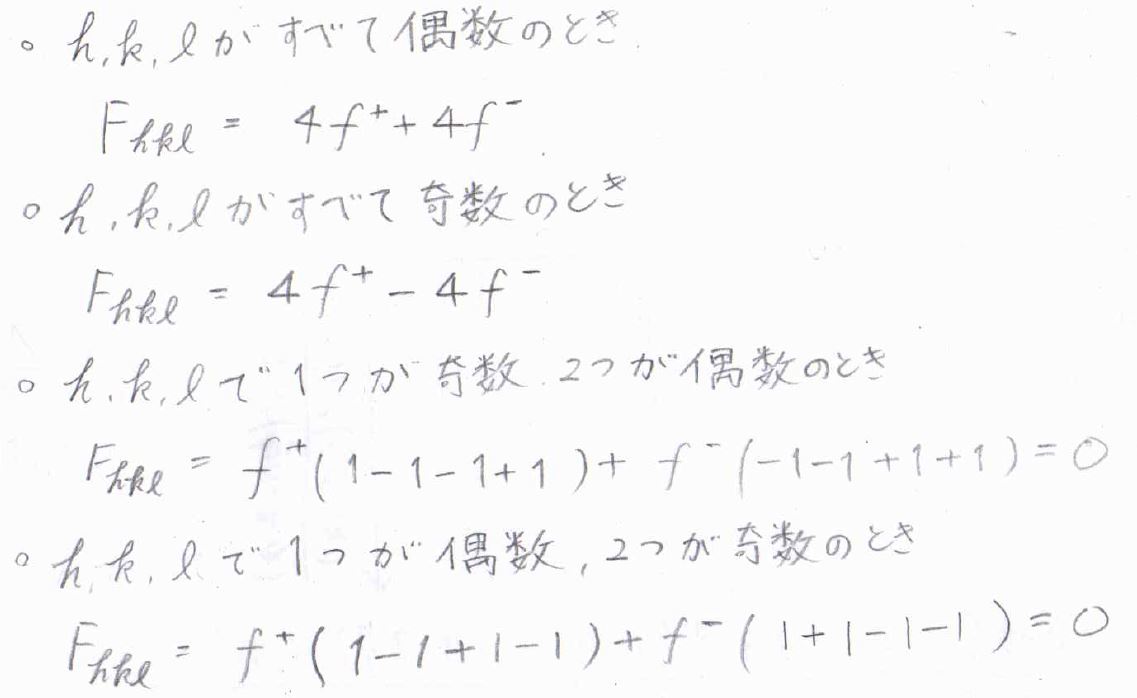 ○ h, k, l がすべて偶数のとき.
F_hkl = 4f⁺ + 4f⁻
○ h, k, l がすべて奇数のとき
F_hkl = 4f⁺ − 4f⁻
○ h, k, l で1つが奇数, 2つが偶数のとき
F_hkl = f⁺(1−1−1+1) + f⁻(−1−1+1+1) = 0
○ h, k, l で1つが偶数, 2つが奇数のとき
F_hkl = f⁺(1−1+1−1) + f⁻(1+1−1−1) = 0